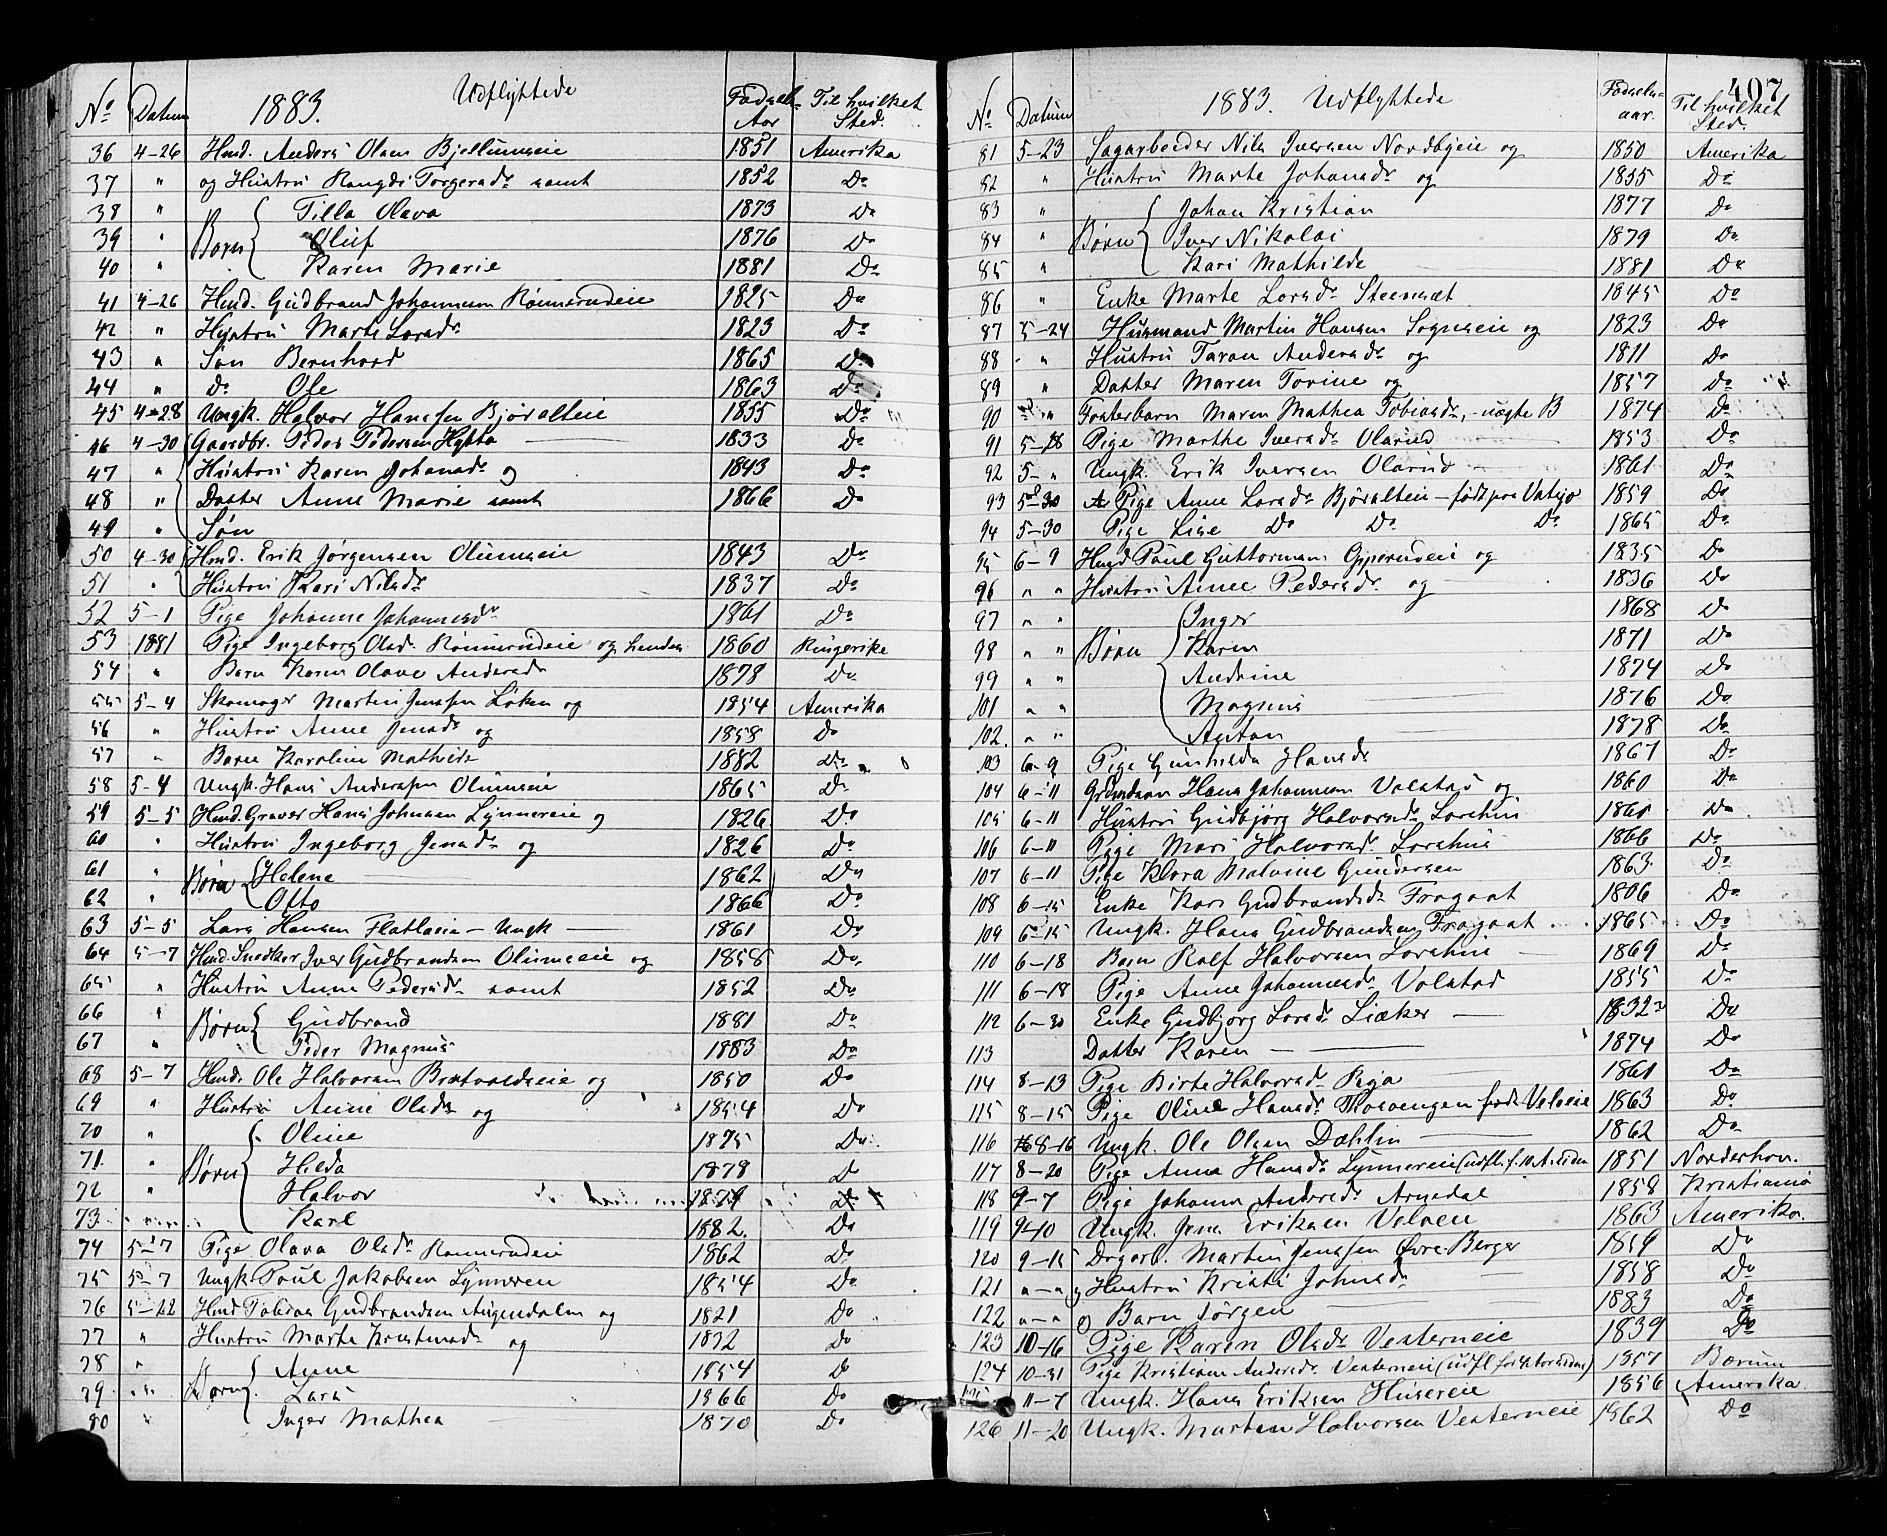 Udflyttede
1883.
No Datum Fødsels Aar Til hvilket Sted.
36 4-26 Hmd. Anders Olsen Bjellumseie 1851 Amerika
37 " og Hustru Rangdi Torgersdr samt 1852 Do
38 " Tilla Olava 1873 Do
39 " Børn Oluf 1876 Do
40 " Karen Marie 1881 Do
41 4-26 Hmd. Gudbrand Johannesen Rønnerudeie 1825 Do
42 " Hustru Marte Larsdr 1823 Do
43 " Søn Bernhard 1865 Do
44 " do Ole 1863 Do
45 4-28 Ungk. Halvor Hanssen Bjøralteie 1855 Do
46 4-30 Gaardbr. Peder Pedersen Hytta 1833 Do
47 " Hustru Karen Johansdr og 1843 Do
48 " Datter Anne Marie samt 1866 Do
49 " Søn
50 4-30 Hmd. Erik Jørgensen Olumseie 1843 Do
51 " Hustru Kari Nilsdr 1837 Do
52 5-1 Pige Johanne Johannesdr 1861 Do
53 1881 Pige Ingeborg Olsd. Rønnerudeie og hendes 1860 Ringerike
54 " Barn Karen Olave Andersdr 1878 Do
55 5-4 Skomager Martin Jenssen Løken og 1854 Amerika
56 " Hustru Anne Jensdr og 1858 Do
57 " Barn Karoline Mathilde 1882 Do
58 5-4 Ungk. Hans Anderssen Olumseie 1865 Do
59 5-5 Hmd. Graver Hans Johnsen Lynnereie og 1826 Do
60 " Hustru Ingeborg Jensdr og 1826 Do
61 " Børn Helene 1862 Do
62 " Otto 1866 Do
63 5-5 Lars Hansen Flatlaeie - Ungk 1861 Do
64 5-7 Hmd. Snedker Iver Gudbrandsen Olumseie og 1858 Do
65 " Hustru Anne Pedersdr samt 1852 Do
66 " Børn Gudbrand 1881 Do
67 " Peder Magnus 1883 Do
68 5-7 Hmd. Ole Halvorsen Bratvoldseie og 1850 Do
69 " Hustru Anne Olsdr og 1854 Do
70 " Oline 1875 Do
71 " Børn Hilda 1878 Do
72 " Halvor 1879 Do
73 " Karl 1882. Do
74 5-7 Pige Olava Olsdr Rønnerudeie 1862 Do
75 5-7 Ungk Paul Jakobsen Lynneren 1854 Do
76 5-22 Hmd Tobias Gudbrandsen Augendalen og 1821 Do
77 " Hustru Marte Kristensdr og 1832 Do
78 " Anne 1854 Do
79 " Børn Lars 1866 Do
80 " Inger Mathea 1870 Do
407
1883. Udflyttede
No. Datum Fødselsaar. Til hvilket Sted.
81 5-23 Sagarbeider Nils Iversen Nordbyeie og 1850 Amerika
82 " Hustru Marte Johansdr og 1855 Do
83 " Johan Kristian 1877 Do
84 " Børn Iver Nikolai 1879 Do
85 " Kari Mathilde 1881 Do
86 " Enke Marte Larsdr Steensæt 1845 Do
87 5-24 Husmand Martin Hansen Sognseie og 1823 Do
88 " Hustru Taran Andersdr og 1811 Do
89 " Datter Maren Torine og 1857 Do
90 " Fosterbarn Maren Mathea Tobiasdr, - uægte B 1874 Do
91 5-18 Pige Marthe Iversdr Olarud 1853 Do
92 5-" Ungk. Erik Iversen Olarud 1861 Do
93 5-30 Pige Anne Larsdr Bjøralteie - født paa Vatsjø 1859 Do
94 5-30 Pige Lise Do Do Do 1865 Do
95 6-9 Hmd Paul Guttormsen Opperudeie og 1835 Do
96 " " Hustru Anne Pedersdr og 1836 Do
97 " " Inger 1868 Do
98 " " Børn Karen 1871 Do
99 " " Andrine 1874 Do
101 " " Magnus 1876 Do
102. " " Anton 1878 Do
103 6-9 Pige Gunhilda Hansdr 1867 Do
104 6-11 Grdmdsøn Hans Johannesen Volstad og 1860 Do
105 6-11 Hustru Gudbjørg Halvorsdr Lorshus 1861 Do
106 6-11 Pige Mari Halvorsdr Lorshus 1866 Do
107 6-11 Pige Klara Malvine Gundersen 1863 Do
108 6-15 Enke Kari Gudbrandsdr Fragaat 1806 Do
109 6-15 Ungk. Hans Gudbrandsen Fragaat 1865 Do
110 6-18 Barn Rolf Halvorsen Lorshus 1869 Do
111 6-18 Pige Anne Johannesdr Volstad 1855 Do
112 6-30 Enke Gudbjørg Larsdr Liaker 1832 Do
113 Datter Karen 1874 Do
114 8-13 Pige Birte Halvorsdr 1861 Do
115 8-15 Pige Oline Hansdr født Velseie 1863 Do
116 8-16 Ungk. Ole Olsen Dæhlin 1862 Do
117 8-20 Pige Anna Hansdr Lynnereie (udfl. f. 10 A. siden 1851 Norderhov.
118 9-7 Pige Johanne Andersdr Arnedal 1858 Kristiania
119 9-10 Ungk. Jens Eriksen Velsen 1863 Amerika.
120 9-15 Dagarb. Martin Jenssen Øvre Berger 1859 Do
121 " - " og Hustru Kristi Johnsdr 1858 Do
122 " - " og Barn Jørgen 1883 Do
123 10-16 Pige Karen Olsdr Vesterneie 1839 Do
124 10-31 Pige Kristiane Andersdr Vesterneie (udfl for siden) 1857 Bærum
125 11-7 Ungk. Hans Eriksen Husereie 1856 Amerika
126 11-20 Ungk. Martin Halvorsen Vesterneie 1862 Do